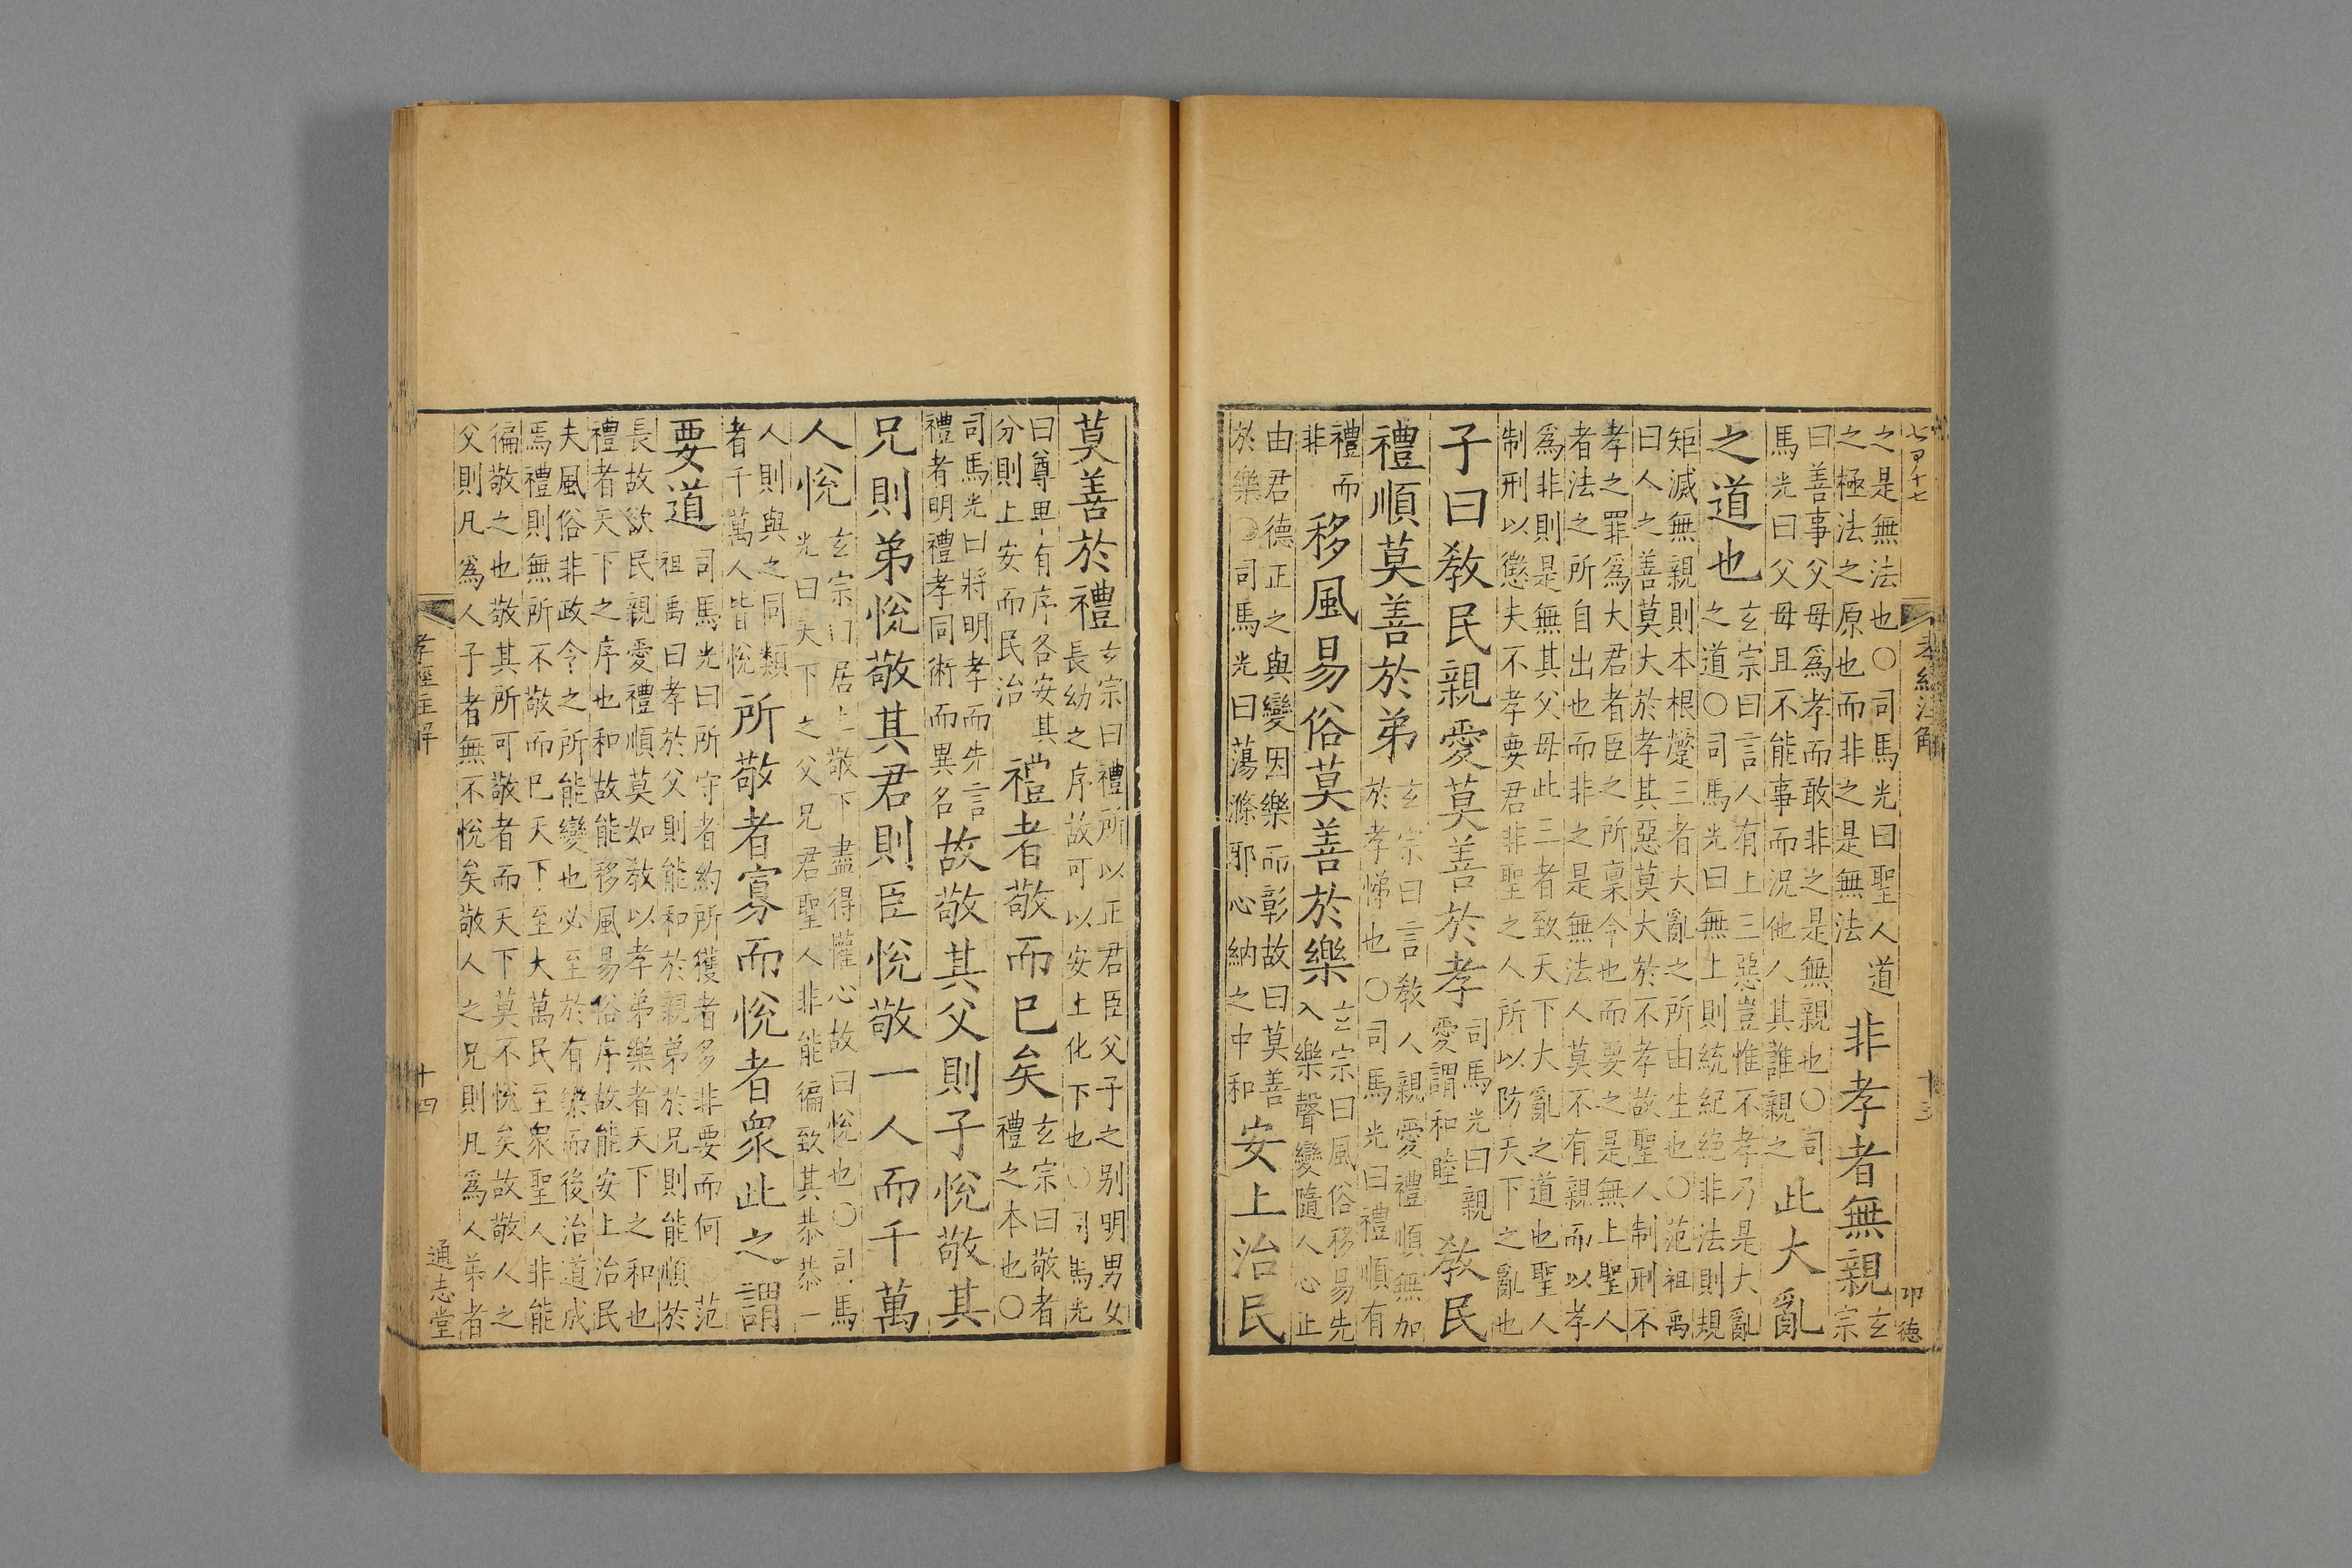 孝經注解
十三
之是無法也〇司馬光曰聖人道
之極法之原也而非之是無法
非孝者無親
玄
宗
曰善事父母為孝而敢非之是無親也〇司
馬光曰父母且不能事而況他人其誰親之
此大亂
之道也
玄宗曰言人有上三惡豈惟不孝乃是大亂
之道〇司馬光曰無上則統紀絕非法則規
矩滅無親則本根蹙三者大亂之所由生也〇范祖禹
曰人之善莫大於孝其惡莫大於不孝故聖人制刑不
孝之罪為大君者臣之所稟令也而要之是無上聖人
者法之所自出也而非之是無法人莫不有親而以孝
為非則是無其父母此三者致天下大亂之道也聖人
制刑以懲夫不孝要君非聖之人所以防天下之亂也
子曰教民親愛莫善於孝
司馬光曰親
愛謂和睦
教民
禮順莫善於弟
玄宗曰言教人親愛禮順無加
於孝悌也〇司馬光曰禮順有
禮而
非
移風易俗莫善於樂
玄宗曰風俗移易先
入樂聲變隨人心正
由君德正之與變因樂而彰故曰莫善
於樂〇司馬光曰蕩滌邪心納之中和
安上治民
莫善於禮
玄宗曰禮所以正君臣父子之別明男女
長幼之序故可以安上化下也〇司馬光
曰尊卑有序各安其
分則上安而民治
禮者敬而已矣
玄宗曰敬者
禮之本也〇
司馬光曰將明孝而先言
禮者明禮孝同術而異名
故敬其父則子悅敬其
兄則弟悅敬其君則臣悅敬一人而千萬
人悅
玄宗曰居上敬下盡得懽心故曰悅也〇司馬
光曰天下之父兄君聖人非能徧致其恭恭一
人則與之同類
者千萬人皆悅
所敬者寡而悅者眾此之謂
要道
司馬光曰所守者約所獲者多非要而何 范
祖禹曰孝於父則能和於親弟於兄則能順於
長故欲民親愛禮順莫如教以孝弟樂者天下之和也
禮者天下之序也和故能移風易俗序故能安上治民
夫風俗非政令之所能變也必至於有樂而後治道成
焉禮則無所不敬而已天下至大萬民至眾聖人非能
徧敬之也敬其所可敬者而天下莫不悅矣故敬人之
父則凡為人子者無不悅矣敬人之兄則凡為人弟者
孝經注解
十四
通志堂